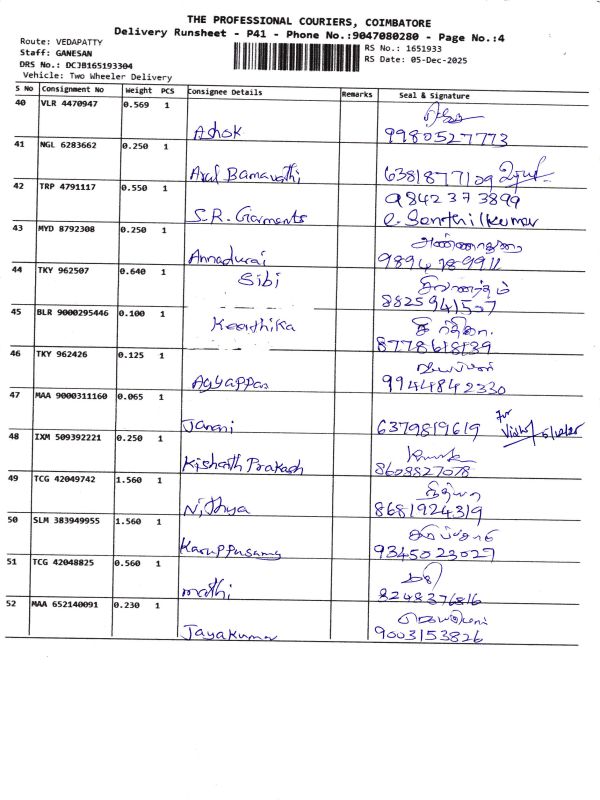 THE PROFESSIONAL COURIERS, COIMBATORE
Delivery Runsheet - P41 - Phone No.:9047080280 - Page No.:4
Route: VEDAPATTY
RS No.: 1651933
Staff: GANESAN
RS Date: 05-Dec-2025
DRS No.: DCJB165193304
Vehicle: Two Wheeler Delivery
S No Consignment No Weight PCS Consignee Details Remarks Seal & Signature
40 VLR 4470947 0.569 1
Ashok 9980527773
41 NGL 6283662 0.250 1
Arul 6381877109
42 TRP 4791117 0.550 1 9842373899
S.R. Garments
43 MYD 8792308 0.250 1 அண்ணாதுரை
Annadurai
44 TKY 962507 0.640 1
Sibi
8825941507
45 BLR 9000295446 0.100 1
Keerthika
8778618139
46 TKY 962426 0.125 1
Ayyappan 9944842330
47 MAA 9000311160 0.065 1
for
Janani 6379819619
48 IXM 509392221 0.250 1
Prakash 8608827078
49 TCG 42049742 1.560 1 நித்யா
Nithya 8681924319
50 SLM 383949955 1.560 1
Karuppusamy 9345023027
51 TCG 42048825 0.560 1
mathi 8248376816
52 MAA 652140091 0.230 1
Jayakumar 9003153826